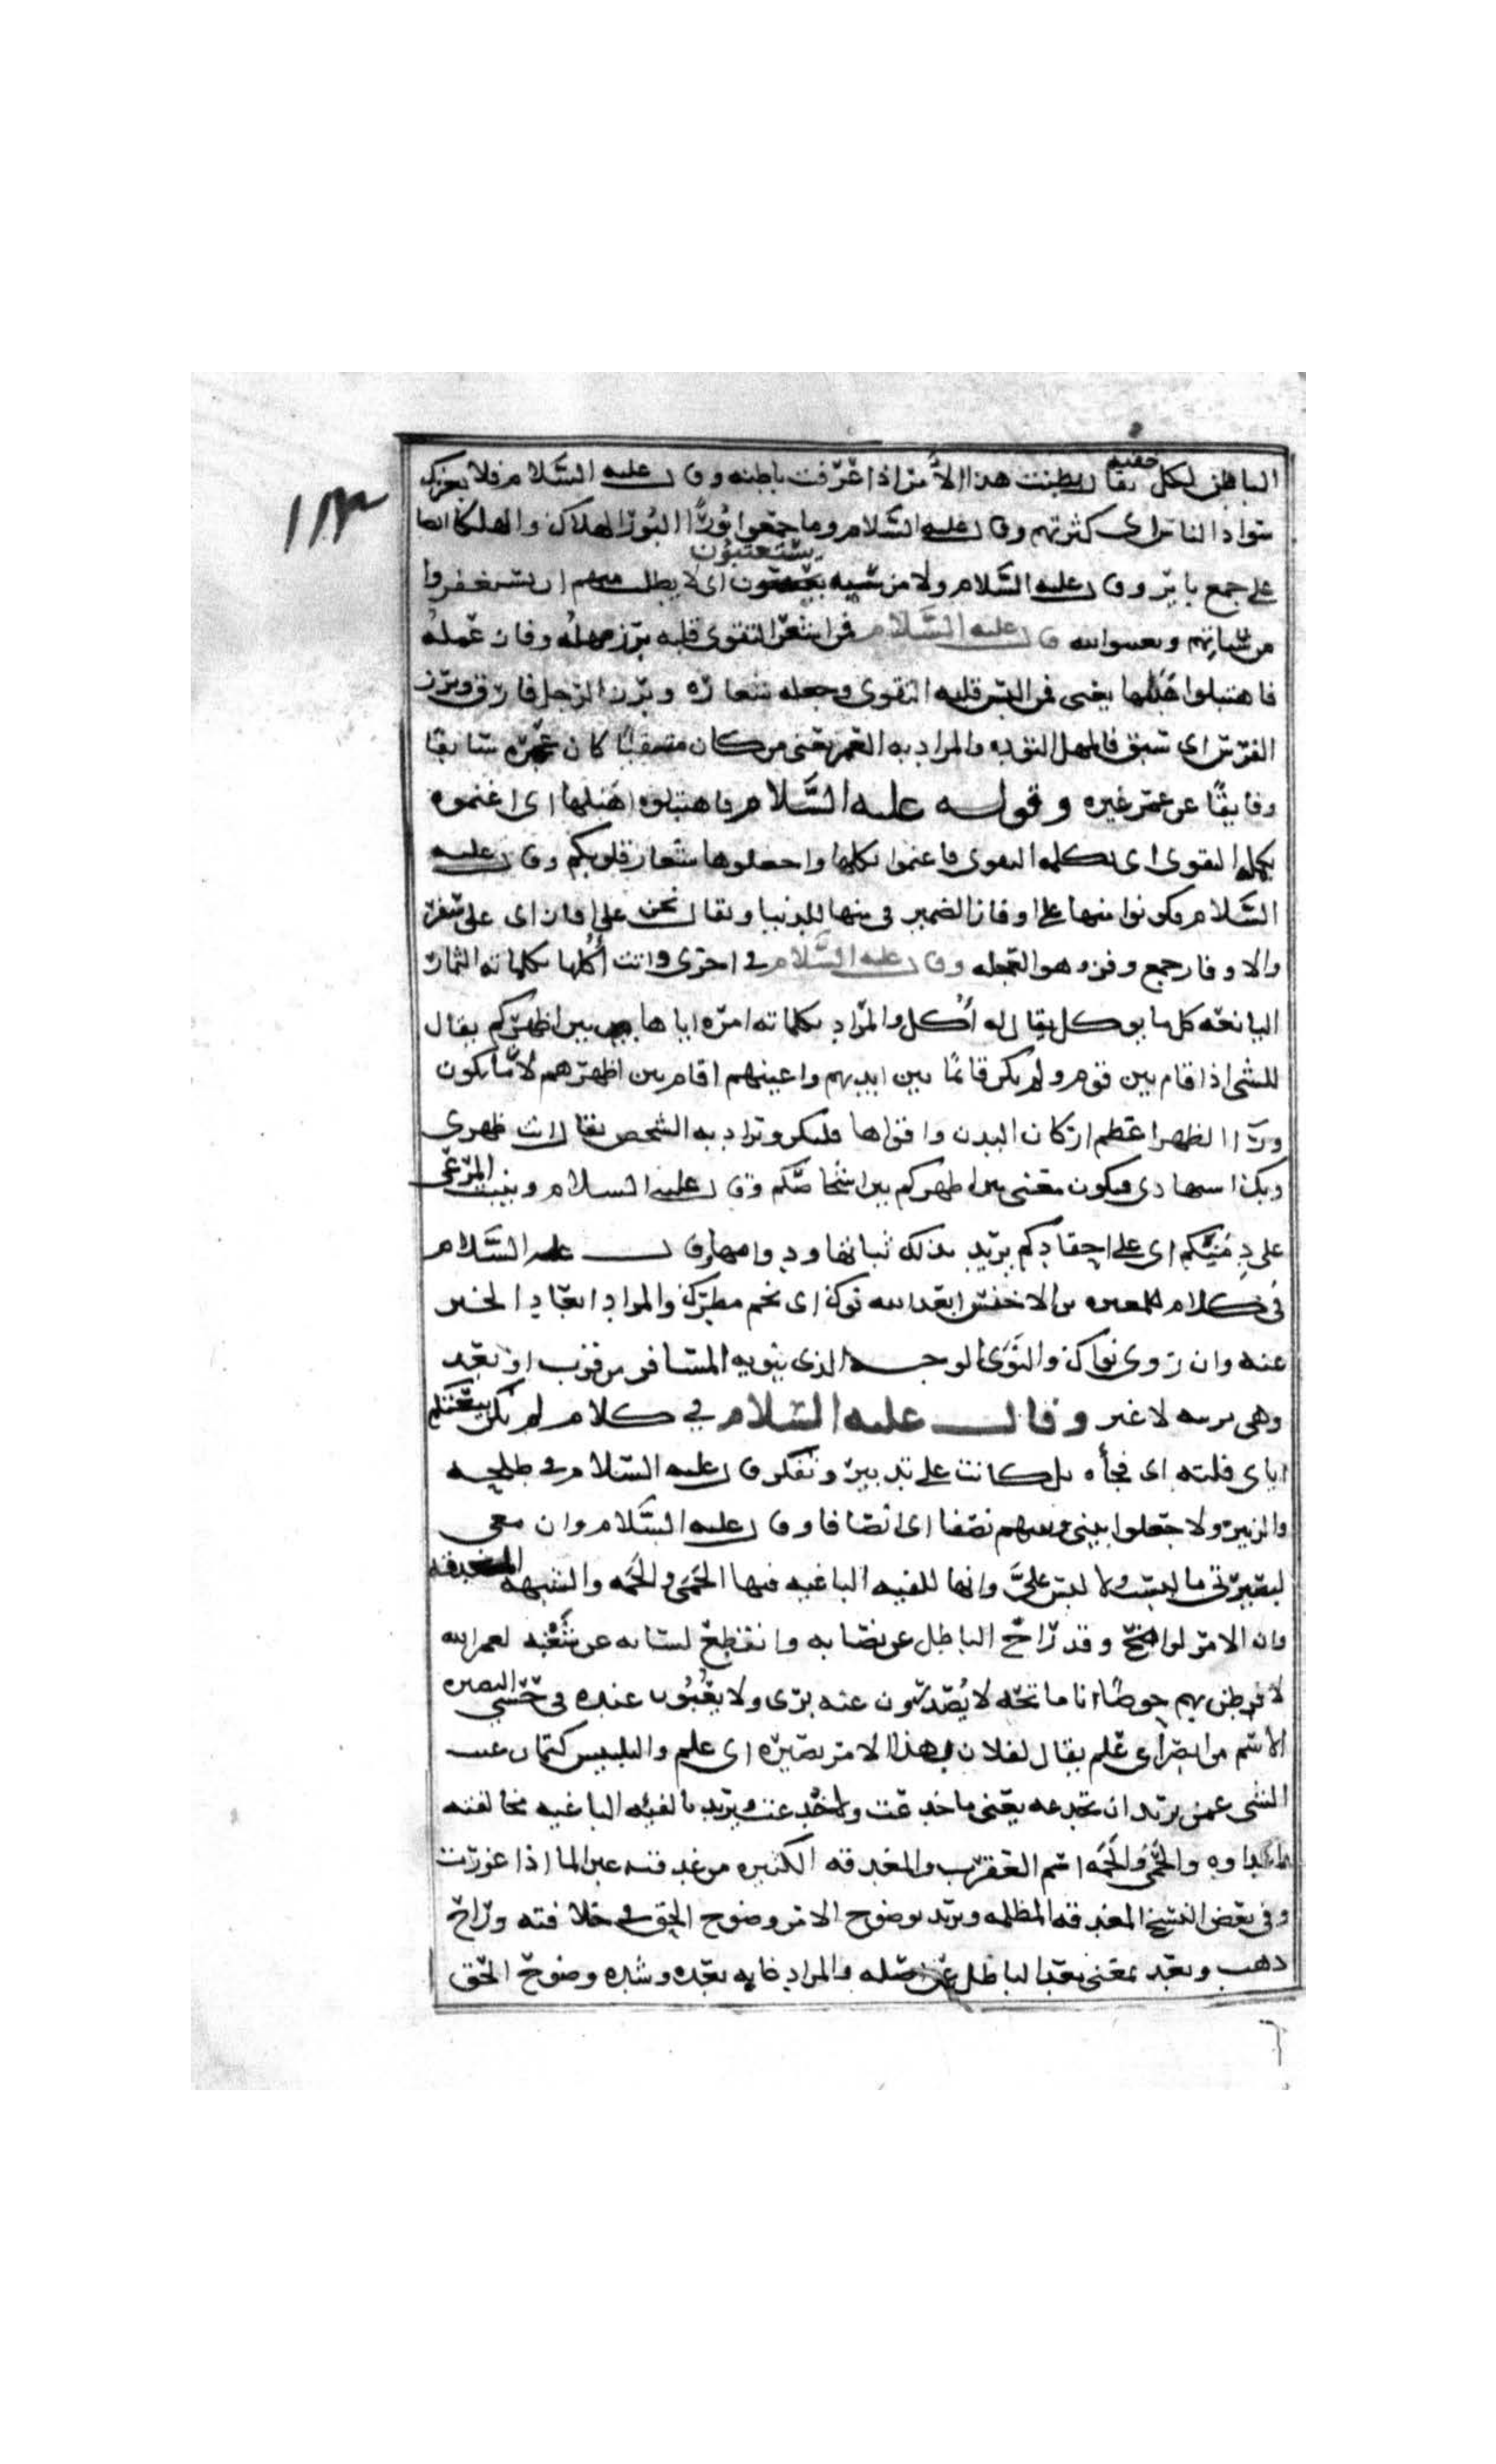 ١٨٣
الباطن لكل خفيه يقال بطنت هذا الأمر اذا عرفت باطنه وقال عليه السلام فلا يغرنك
سواد الناس اى كثرتهم وقال عليه السلام وما جمعوا بُورًا البُور الهلاك والهلكا ايضا
على جمع باير وقال عليه السلام ولا من سيه يستعتبون اى لا يطلب منهم ان يستغفروا
من سياتهم قال عليه السلام فمن اشعر التقوى قلبه برز مهله وفاز عمله
فاهتبلوا هَبَلها يعنى فمن البس قلبه التقوى وجعله شعاره وبرز الرجل فاق وبرز
الفرس اى سبق فالمهل التؤده والمراد به العمر يعنى من كان متقيا كان عمره سابقا
وفايقًا عن عمر غيره وقوله عليه السَّلام فاهتبلوا هَبَلها اى اغنموه
بكلمه التقوى فاغنموا واجعلوها شعار قلوبكم وقال عليه
السَّلام فكونوا منها على اوفاز الضمير فى منها للدنيا ويقال نحن على اوفاز اى على سفر
والاوفاز جمع وفز وهو العجله وقال عليه السلام فى اخرى واتت أُكُلها بكلماته الثمار
اليانعه كل ما يوكل يقال له أُكل والمراد بكلماته امره اياها بين اظهركم يقال
للشى اذا قام بين قوم ولم يكن قائمًا بين ايديهم واعينهم اقام بين اظهرهم
الظهر اعظم اركان البدن واقواها فليكن ويراد به الشخص يقال انت ظهرى
فيكون معنى بين اظهركم بين اشخاصكم وقال عليه السلام ونبت المرعى
على دِمَنِكم اى على احقادكم يريد بذلك ثباتها ودوامها وقال عليه السَّلام
فى كلام للمغيره بن الاخنس ابعد الله نوك اى نجم مطرك والمراد ابعاد الخير
عنه وان روى نواك والنوى الوجه الذى ينويه المسافر من قرب او بعد
وهى لا غير وقال عليه السلام فى كلام لم تكن بيعتكم
اياى فلته اى فجأه بل كانت على تدبير وتفكر وقال عليه السلام فى طلحه
والزبير ولا جعلوا بينى وبينهم نصفا اى انصافا وقال عليه السَّلام وان معى
لبصيرتى ما لبست ولا لبس علىَّ وانها للفيه الباغيه فيها الحَمَى والحُمَه والشبهه المغدفه
وان الامر لواضح وقد زاح الباطل عن نصابه وانقطع لسانه عن شَغْبه لعمر الله
لافرطن لهم حوضًا انا ماتحه لا يُصدرون عنه برى ولا يعُبُون عنده فى حَسى البصيره
الاسم من ابصر اى علم يقال لفلان بهذا الامر بصيره اى علم والتلبيس كتمان عيب
الشى عمن يريد ان تخدعه يعنى ما خدعت ولا خُدعت ويريد بالفئه الباغيه مخالفته
والحُمَه اسم العقرب والمغدفه الكثيره من غدقت عين الما اذا غزرت
وفى بعض النسخ المغدفه المظلمه ويريد بوضوح الامر وضوح الحق فى خلافته وزاح
ذهب وبعد بمعنى بعد الباطل عن اصله والمراد غايه بعده وشده وضوح الحق